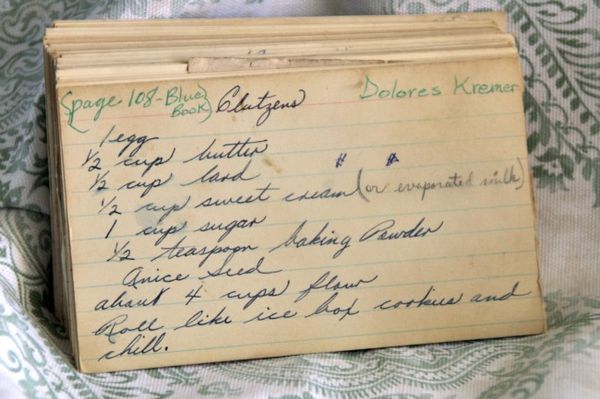 {page 108-Blue Book} Clutzens Dolores Kremer
1 egg
1/2 cup butter
1/2 cup lard
1/2 cup sweet cream (or evaporated milk)
1 cup sugar
1/2 teaspoon baking Powder
Anice Seed
about 4 cups flour
Roll like ice box cookies and
chill.